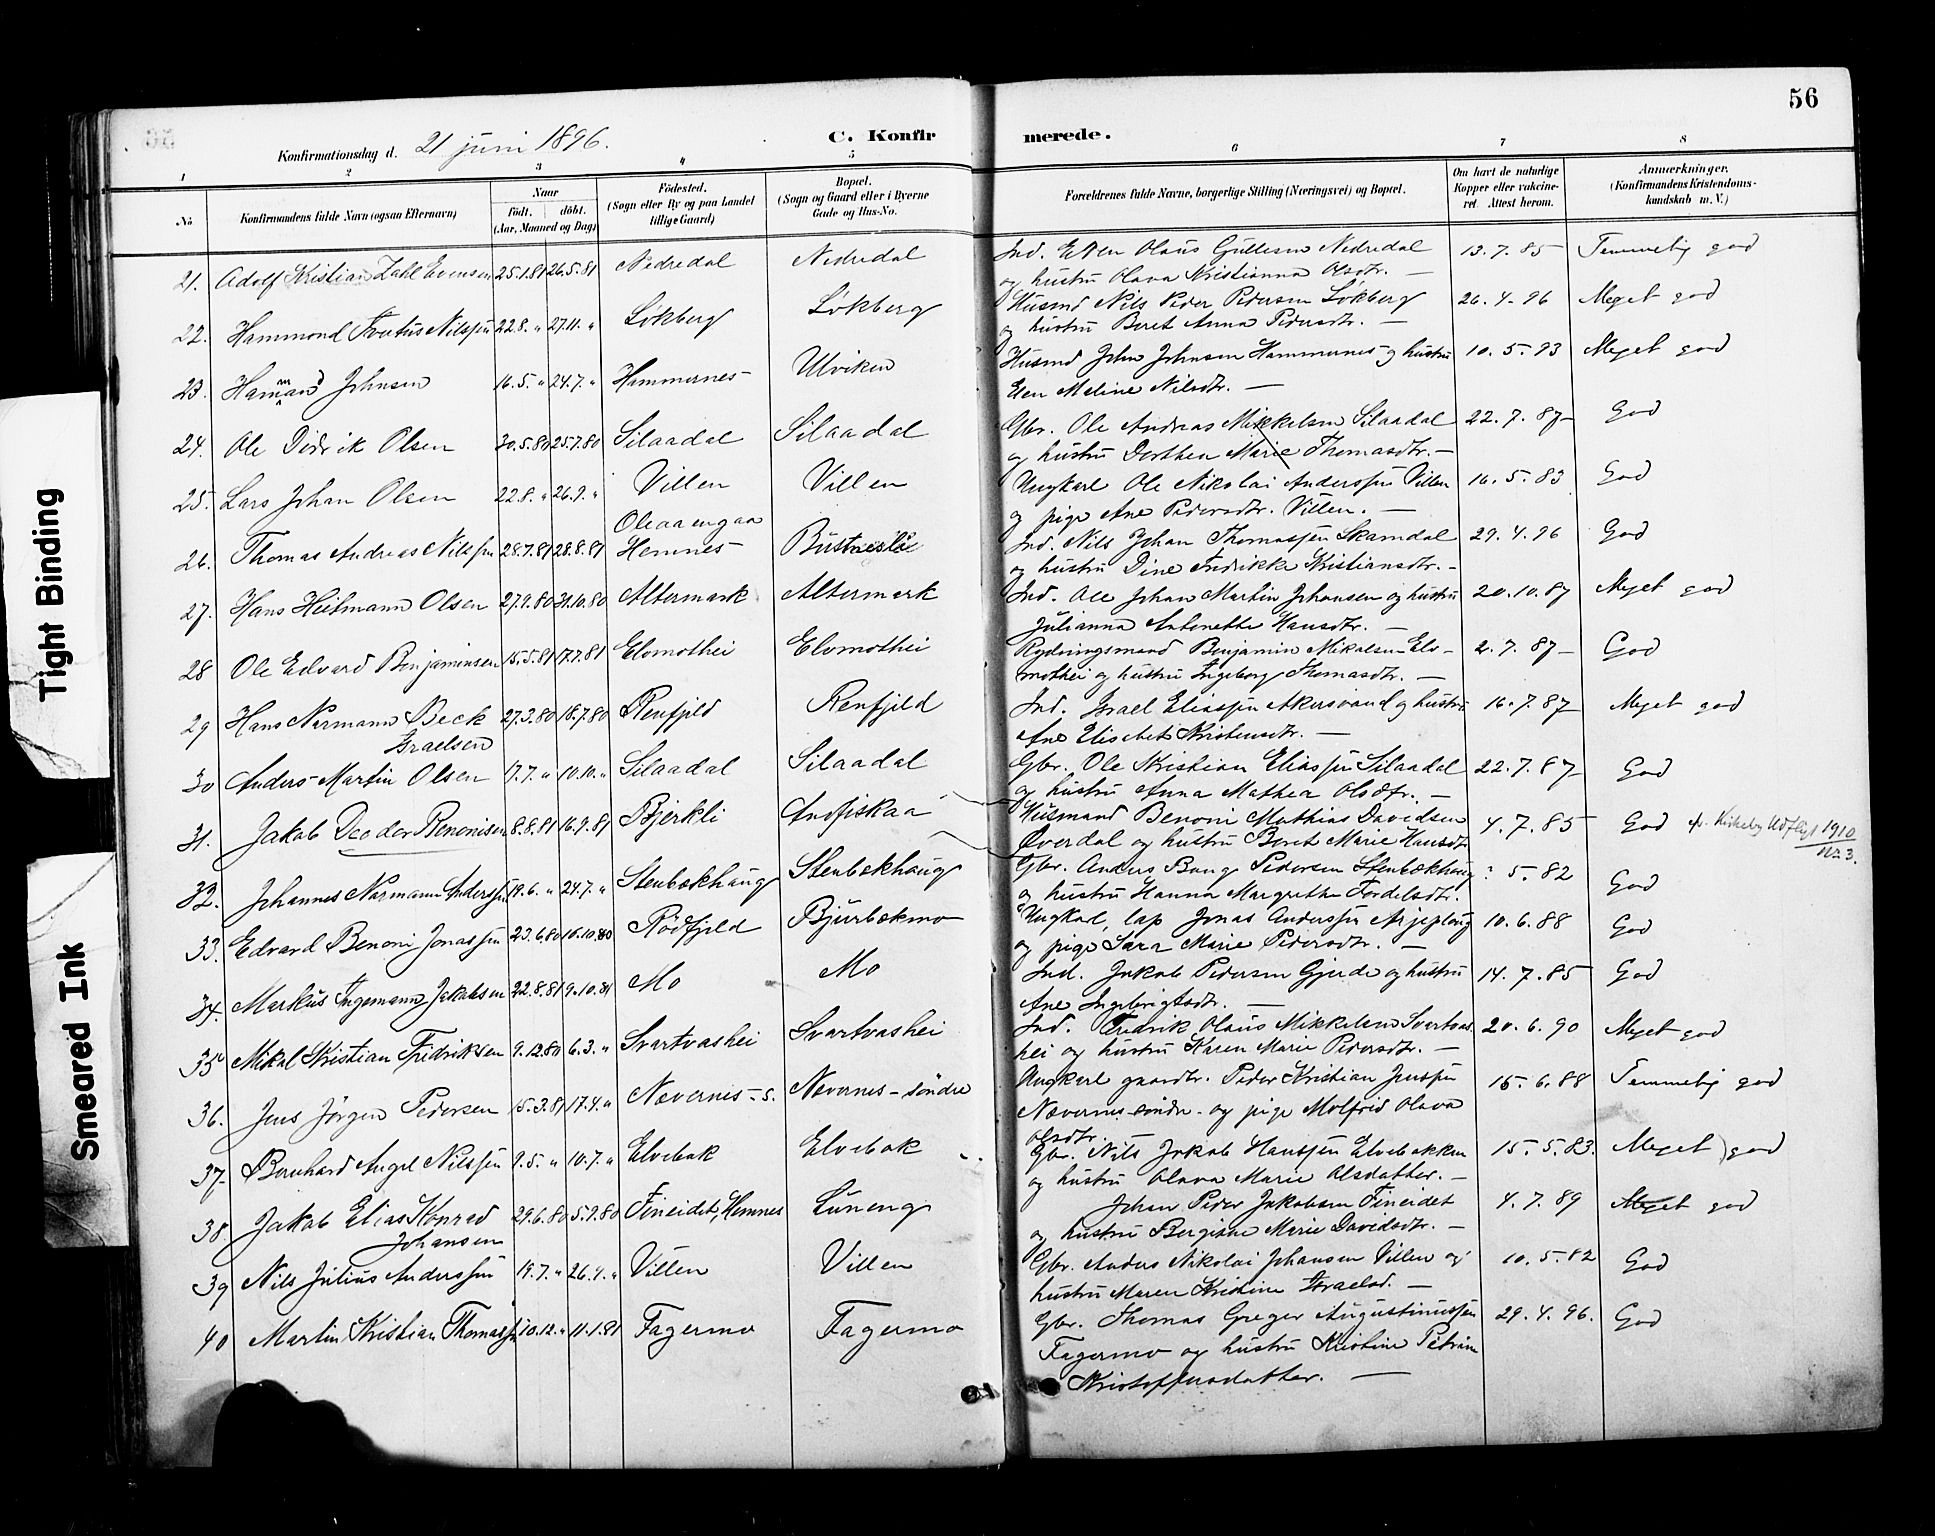 56
Konfirmationsdag d. 21 juni 1896. C. Konfirmerede.
1 2 3 4 5 6 7 8
No Konfirmandens fulde Navn (ogsaa Efternavn) Naar født. døbt. (Aar, Maaned og Dag) Födested. (Sogn eller By og paa Landet tillige Gaard) Bopæl. (Sogn og Gaard eller i Byerne Gade og Hus-No. Forældrenes fulde Navne, borgerlige Stilling (Næringsvei) og Bopæl. Om havt de naturlige Kopper eller vakcineret. Attest herom. Anmerkninger. (Konfirmandens Kristendomskundskab m. V.)
21. Adolf Kristian Zahl Evensen 25.1.81 26.5.81 Nedredal Nedredal Ind. Even Olaus Gullesen Nedredal 13.7.85 Temmelig god
og hustru Olava Kristianna Olsdtr. —
22. Hammond Nilssen 22.8. " 27.11. " Løkberg Løkberg Husmd Nils Peder Pedersen Løkberg 26.4.96 Meget god
og hustru Beret Anna Pedersdtr. —
23. Johnsen 16.5. " 24.7. " Hammernes Ulviken Husmd John Johnsen Hammernes og hustru 10.5.93 Meget god
Elen Meline Nilsdtr. —
24. Ole Didrik Olsen 30.5.80 25.7.80 Silaadal Silaadal Gbr. Ole Andreas Mikkelsen Silaadal 22.7.87 God
og hustru Dorthea Marie Thomasdtr. —
25. Lars Johan Olsen 22.8. " 26.9. " Villen Villen Ungkarl Ole Nikolai Anderssen Villen 16.5.83 God
og pige Ane Pedersdtr. Villen. —
26. Thomas Andreas Nilssen 28.7.81 28.8.81 Oleaaengaa Hemnes Bustneslie Ind. Nils Johan Thomassen Skamdal 29.4.96 God
og hustru Dine Fredrikke Kristiansdtr. —
27. Hans Heitmann Olsen 27.9.80 31.10.80 Altermark Altermark Ind. Ole Johan Martin Johansen og hustru 20.10.87 Meget god
Julianna Antonette Hansdtr. —
28 Ole Edvard Benjaminsen 15.5.81 17.7.81 Elvmothei Elvmothei Rydningsmand Benjamin Mikalsen Elv- 2.7.87 God
mothei og hustru Ingeborg Thomasdtr. —
29 Hans Normann Beck 27.3.80 18.7.80 Renfjeld Renfjeld Ind. Israel Eliassen Akersvand og hustru 16.7.87 Meget god
Israelsen Ane Elisabet Kristensdtr. —
30 Anders Martin Olsen 17.7. " 10.10. " Silaadal Silaadal Gbr. Ole Kristian Eliassen Silaadal 22.7.87 God
og hustru Anna Mathea Olsdtr. —
31. Jakob Deodor Benonisen 8.8.81 16.9.81 Bjerkli Andfiskaa Husmand Benoni Mathias Davidsen 4.7.85 God Kirkebog Udflyt 1910 Nr 3.
Øverdal og hustru Beret Marie Hansdt
32. Johannes Normann Anderssen 19.6. " 24.7. " Stenbækhaug Stenbækhaug Gbr. Anders Bang Pedersen Stenbækhaug ? 5.82 God
og hustru Hanna Margrethe Fordelsdtr.
33. Edvard Benoni Jonassen 23.6.80 16.10.80 Rødfjeld Bjurbækmo Ungkarl, lap Jonas Anderssen Arjeploug 10.6.88 God
og pige Sara Marie Pedersdtr. —
34. Markus Ingemann Jakobsen 22.8.81 9.10.81 Mo Mo Ind. Jakob Pedersen Gjerde og hustru 14.7.85 God
Ane Ingebrigtsdtr. —
35 Mikal Kristian Fredriksen 9.12.80 6.3. " Svartvashei Svartvashei Ind. Fredrik Olaus Mikkelsen Svartvas 20.6.90 Meget god
hei og hustru Karen Marie Pedersdtr. —
36. Jens Jörgen Pedersen 15.3.81 17.4. " Nævernes - s. Nævernes - söndre Ungkarl gaardbr. Peder Kristian Jenssen 15.6.88 Temmelig god
Nævernes söndre - og pige Molfrid Olava
Olsdtr. —
37. Bernhard Angel Nilssen 9.5. " 10.7. " Elvebak Elvebak Gbr. Nils Jakob Hanssen Elvebakken 15.5.83. Meget god
og hustru Olava Marie Olsdatter. —
38. Jakob Elias Konrad 29.6.80 5.9.80 Fineidet, Hemnes Luneng Johan Peder Jakobsen Fineidet 4.7.89 Meget god
Johansen og hustru Bergitte Marie Davidsdtr. —
39 Nils Julius Anderssen 19.7. " 26.9. " Villen Villen Gbr. Anders Nikolai Johansen Villen og 10.5.82 God
hustru Maren Kristine Israelsd. —
40 Martin Kristian Thomassen 10.12. " 11.1.81 Fagermo Fagermo Gbr. Thomas Greger Augustinussen 29.4.96. God
Fagermo og hustru Kristine Petrine
Kristoffersdatter. —
Tight Binding
Smeared Ink